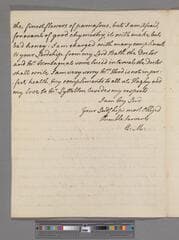 the finest flowers of parnassus, but I am afraid,
for want of good chymistry it will make but
bad honey. I am charged with many compliments
to your Lordship from my Lord Bath the Doctor
and Mr Montagu at some lucid intervals the doctor
shall write. I am very sorry Mr Hood is not in per-
fect health, my compliments to all at Hagley and
my love to Mr Lyttelton besides my respects
I am my Lord
Your Lordships most obliged
Humble Servant
E. M.